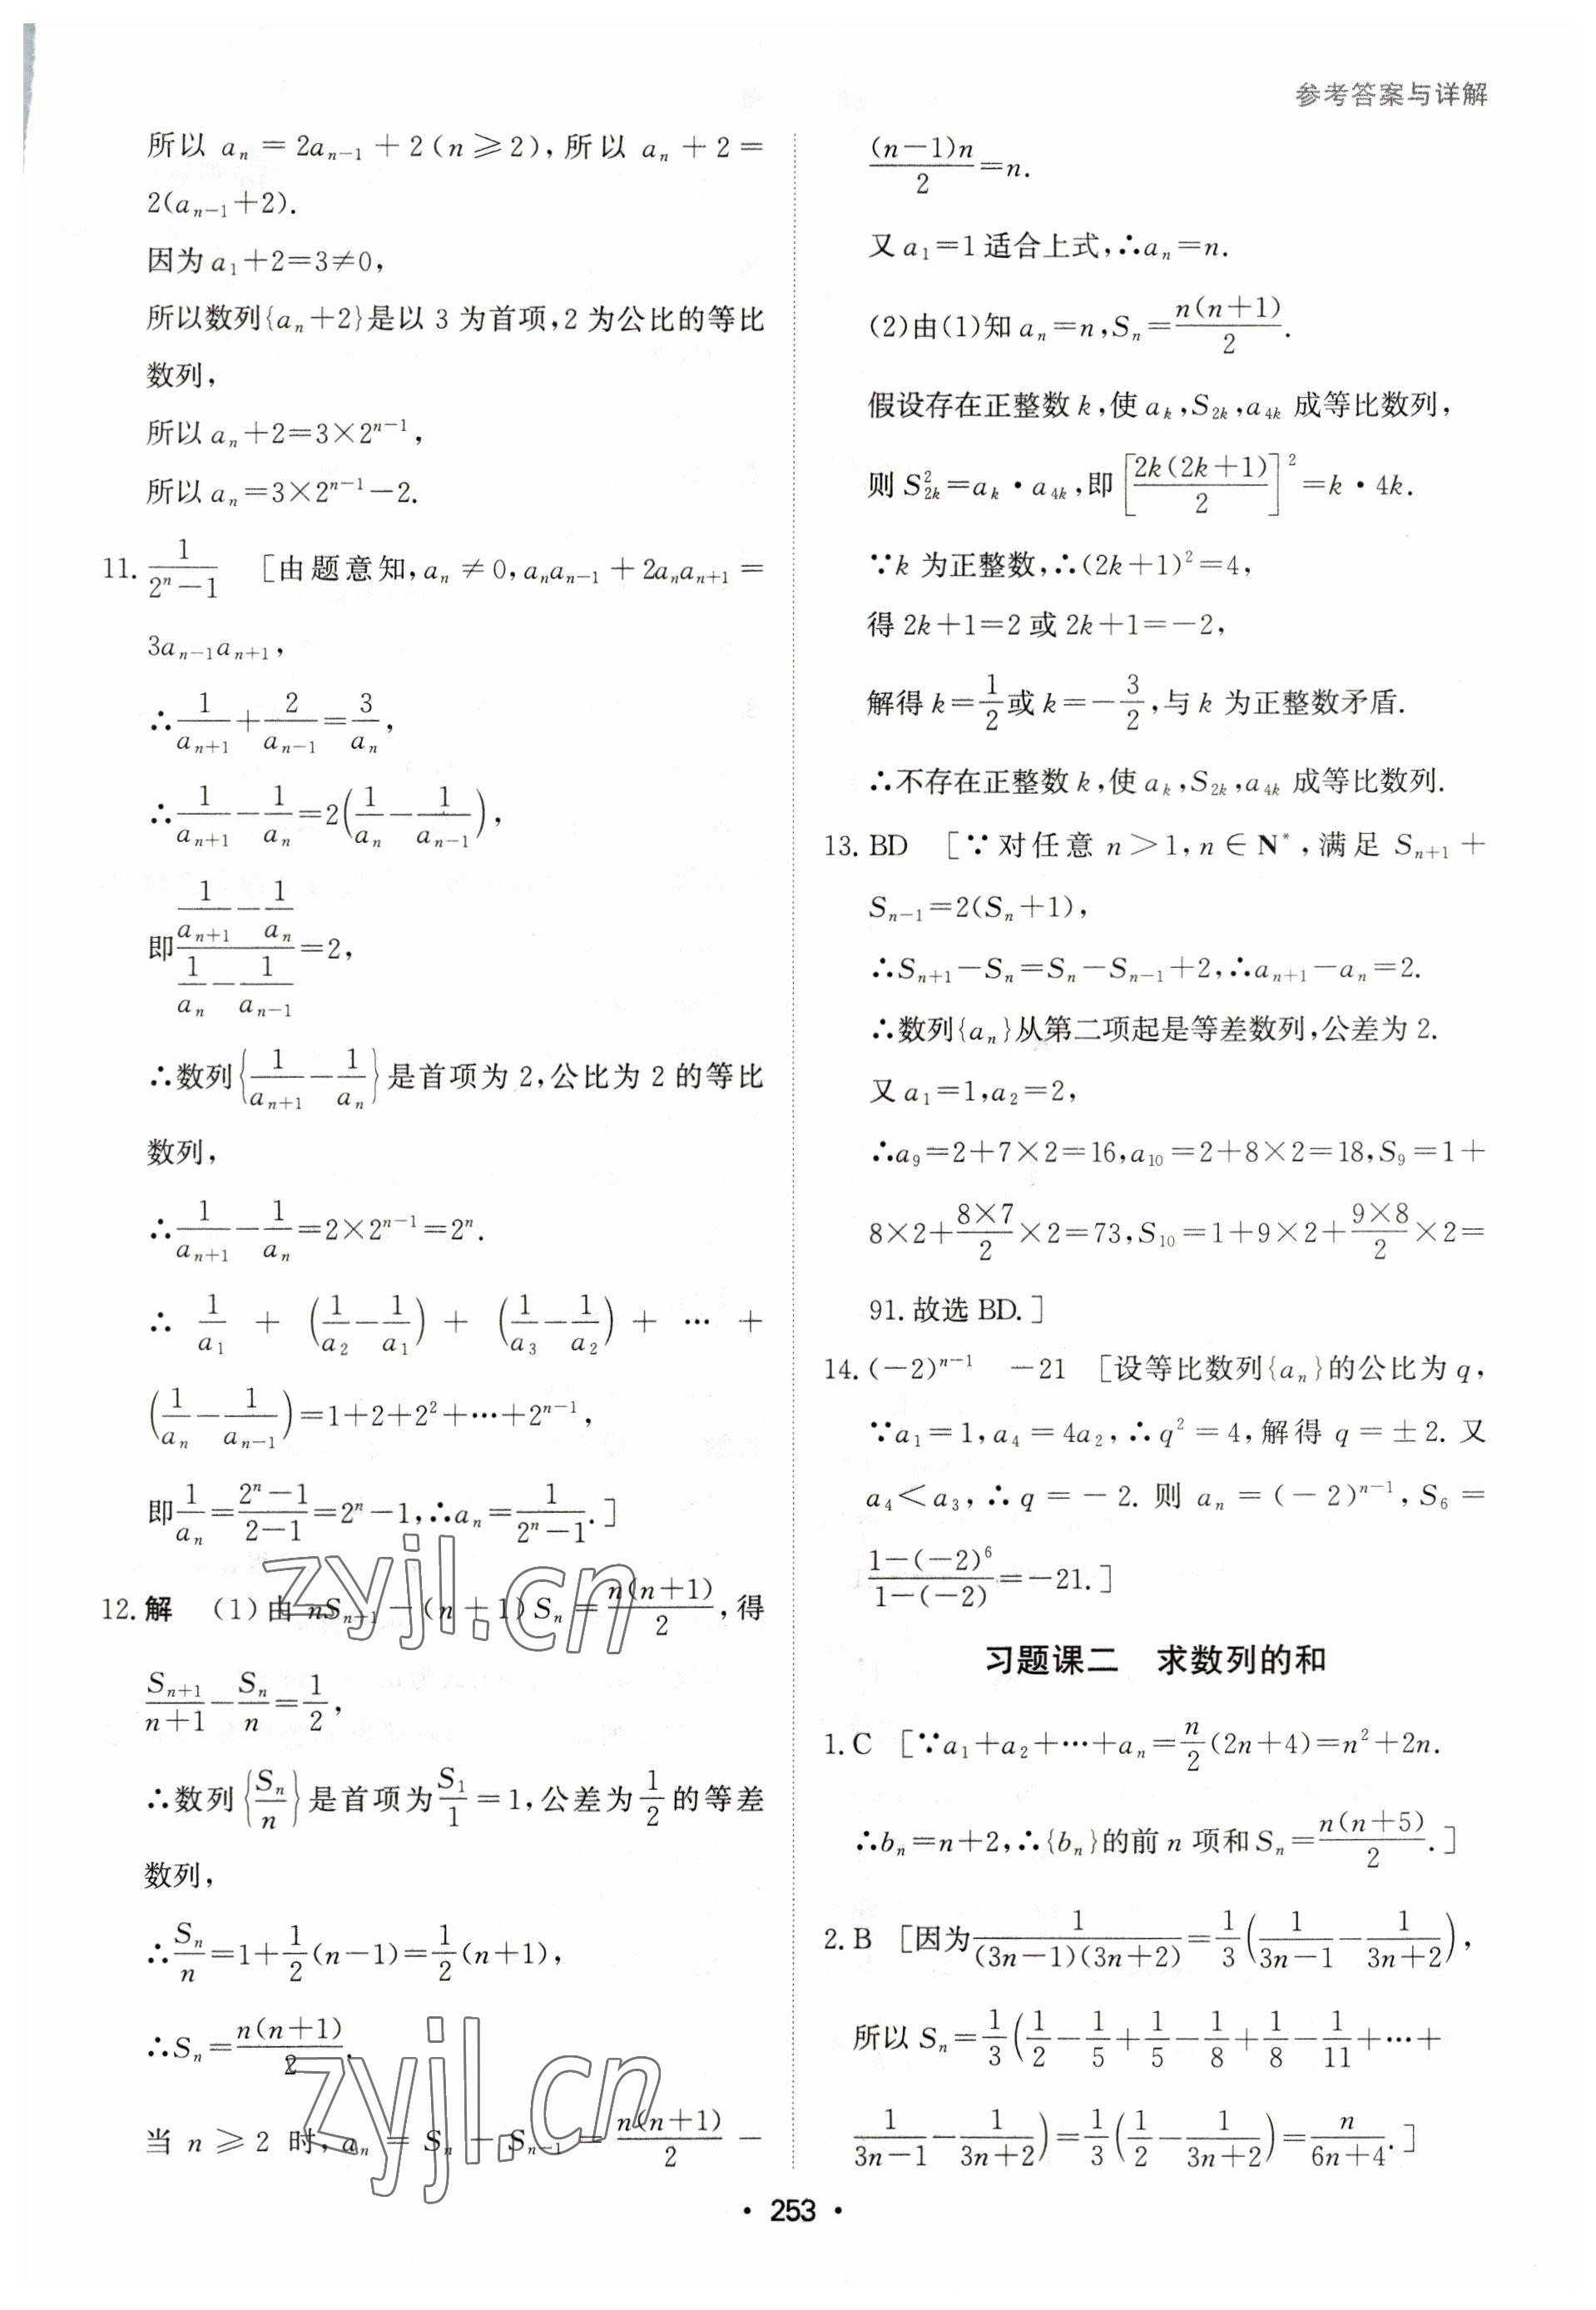 参考答案与详解
所以 aₙ = 2aₙ₋₁ + 2(n ⩾ 2), 所以 aₙ + 2 =
2(aₙ₋₁+2).
因为 a₁+2=3≠0,
所以数列{aₙ+2}是以 3 为首项,2 为公比的等比
数列,
所以 aₙ+2=3×2ⁿ⁻¹,
所以 aₙ=3×2ⁿ⁻¹−2.
11. 1/(2ⁿ−1) [由题意知, aₙ ≠ 0, aₙaₙ₋₁ + 2aₙaₙ₊₁ =
3aₙ₋₁aₙ₊₁,
∴1/aₙ₊₁+2/aₙ₋₁=3/aₙ,
∴1/aₙ₊₁−1/aₙ=2(1/aₙ−1/aₙ₋₁),
即(1/aₙ₊₁−1/aₙ)/(1/aₙ−1/aₙ₋₁)=2,
∴数列{1/aₙ₊₁−1/aₙ}是首项为 2,公比为 2 的等比
数列,
∴1/aₙ₊₁−1/aₙ=2×2ⁿ⁻¹=2ⁿ.
∴ 1/a₁ + (1/a₂−1/a₁) + (1/a₃−1/a₂) + ⋯ +
(1/aₙ−1/aₙ₋₁)=1+2+2²+⋯+2ⁿ⁻¹,
即1/aₙ=(2ⁿ−1)/(2−1)=2ⁿ−1,∴aₙ=1/(2ⁿ−1).]
12. 解 (1)由 nSₙ₊₁−(n+1)Sₙ=n(n+1)/2,得
Sₙ₊₁/(n+1)−Sₙ/n=1/2,
∴数列{Sₙ/n}是首项为S₁/1=1,公差为1/2的等差
数列,
∴Sₙ/n=1+1/2(n−1)=1/2(n+1),
∴Sₙ=n(n+1)/2.
当 n ⩾ 2 时, aₙ = Sₙ − Sₙ₋₁ = n(n+1)/2 −
(n−1)n/2=n.
又 a₁=1 适合上式,∴aₙ=n.
(2)由(1)知 aₙ=n,Sₙ=n(n+1)/2.
假设存在正整数 k,使 aₖ,S₂ₖ,a₄ₖ 成等比数列,
则 S₂ₖ²=aₖ·a₄ₖ,即[2k(2k+1)/2]²=k·4k.
∵k 为正整数,∴(2k+1)²=4,
得 2k+1=2 或 2k+1=−2,
解得 k=1/2或 k=−3/2,与 k 为正整数矛盾.
∴不存在正整数 k,使 aₖ,S₂ₖ,a₄ₖ 成等比数列.
13. BD [∵对任意 n>1,n∈N*,满足 Sₙ₊₁+
Sₙ₋₁=2(Sₙ+1),
∴Sₙ₊₁−Sₙ=Sₙ−Sₙ₋₁+2,∴aₙ₊₁−aₙ=2.
∴数列{aₙ}从第二项起是等差数列,公差为 2.
又 a₁=1,a₂=2,
∴a₉=2+7×2=16,a₁₀=2+8×2=18,S₉=1+
8×2+(8×7)/2×2=73,S₁₀=1+9×2+(9×8)/2×2=
91.故选 BD.]
14. (−2)ⁿ⁻¹ −21 [设等比数列{aₙ}的公比为 q,
∵a₁=1,a₄=4a₂,∴q²=4,解得 q=±2. 又
a₄<a₃,∴q=−2. 则 aₙ=(−2)ⁿ⁻¹,S₆=
(1−(−2)⁶)/(1−(−2))=−21.]
习题课二 求数列的和
1. C [∵a₁+a₂+⋯+aₙ=n/2(2n+4)=n²+2n.
∴bₙ=n+2,∴{bₙ}的前 n 项和 Sₙ=n(n+5)/2.]
2. B [因为1/((3n−1)(3n+2))=1/3(1/(3n−1)−1/(3n+2)),
所以 Sₙ=1/3(1/2−1/5+1/5−1/8+1/8−1/11+⋯+
1/(3n−1)−1/(3n+2))=1/3(1/2−1/(3n+2))=n/(6n+4).]
zyjl.cn
zyjl.cn
· 253 ·